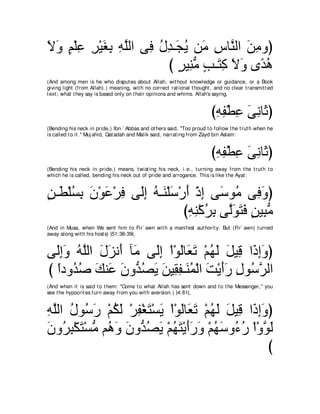 (وَمِنَ النَّاسِ مَن يُجَـدِلُ فِى اللَّهِ بِغَيْرِ عِلْمٍ وَلاَ
هُدًى وَلاَ كِتَـبٍ مُّنِيرٍ )
(And among men is he who disputes about Allah, without knowledge or guidance, or a Book
giving light (from Allah).) meaning, with no correct rational thought, and no clear transmitted
text; what they say is based only on their opinions and whims. Allah's saying,
(ثَانِيَ عِطْفِهِ)
(Bending his neck in pride,) Ibn `Abbas and others said, "Too proud to follow the truth when he
is called to it.'' Mujahid, Qatadah and Malik said, narrating from Zayd bin Aslam:
(ثَانِيَ عِطْفِهِ)
(Bending his neck in pride,) means, twisting his neck, i.e., turning away from the truth to
which he is called, bending his neck out of pride and arrogance. This is like the Ayat:
(وَفِى مُوسَى إِذْ أَرْسَلْنَـهُ إِلَى فِرْعَوْنَ بِسُلْطَـنٍ
مُّبِينٍ فَتَوَلَّى بِرُكْنِهِ)
(And in Musa, when We sent him to Fir`awn with a manifest authority. But (Fir`awn) turned
away along with his hosts) )51:38-39(,
(وَإِذَا قِيلَ لَهُمْ تَعَالَوْاْ إِلَى مَآ أَنزَلَ اللَّهُ وَإِلَى
الرَّسُولِ رَأَيْتَ الْمُنَـفِقِينَ يَصُدُّونَ عَنكَ صُدُوداً )
(And when it is said to them: "Come to what Allah has sent down and to the Messenger,'' you
see the hypocrites turn away from you with aversion.) )4:61(,
(وَإِذَا قِيلَ لَهُمْ تَعَالَوْاْ يَسْتَغْفِرْ لَكُمْ رَسُولُ اللَّهِ
لَوَّوْاْ رُءُوسَهُمْ وَرَأَيْتَهُمْ يَصُدُّونَ وَهُم مُّسْتَكْبِرُونَ
)